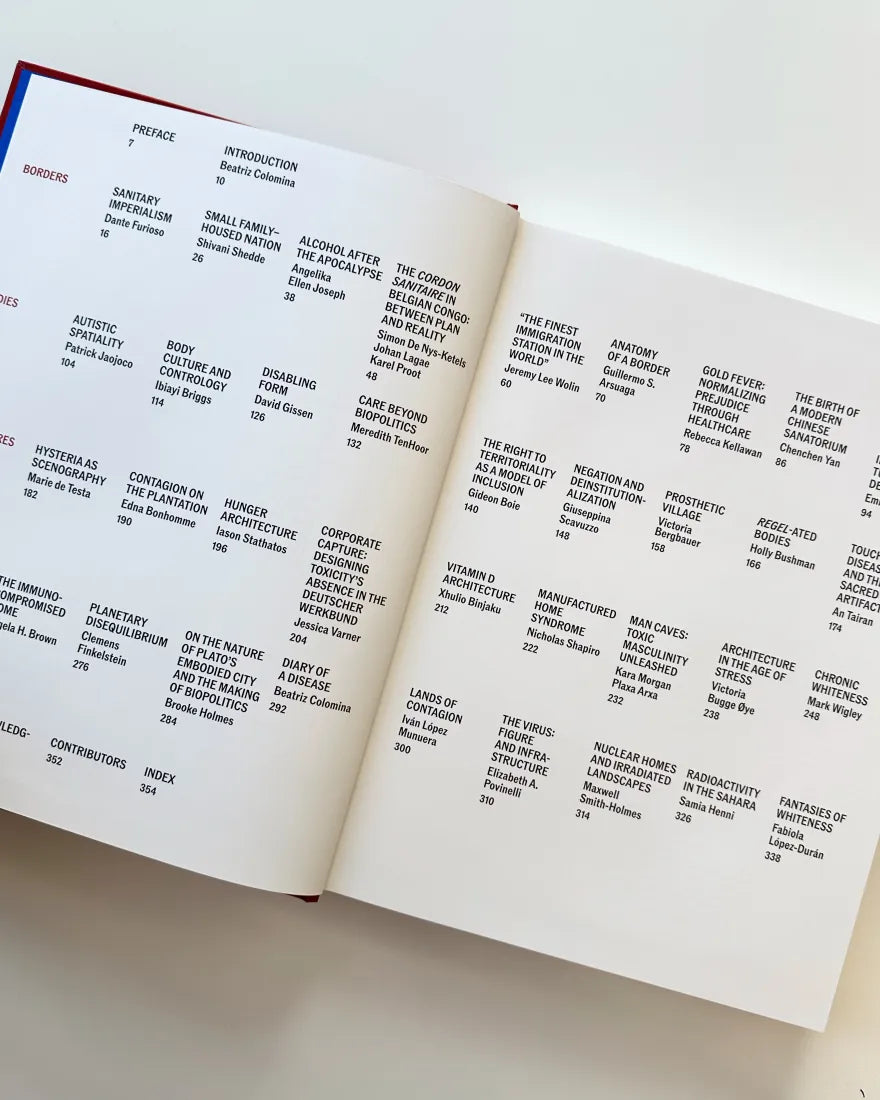 PREFACE
7
INTRODUCTION
Beatriz Colomina
10
BORDERS
SANITARY
IMPERIALISM
Dante Furioso
16
SMALL FAMILY–
HOUSED NATION
Shivani Shedde
26
ALCOHOL AFTER
THE APOCALYPSE
Angelika
Ellen Joseph
38
THE CORDON
SANITAIRE IN
BELGIAN CONGO:
BETWEEN PLAN
AND REALITY
Simon De Nys-Ketels
Johan Lagae
Karel Proot
48
“THE FINEST
IMMIGRATION
STATION IN THE
WORLD”
Jeremy Lee Wolin
60
ANATOMY
OF A BORDER
Guillermo S.
Arsuaga
70
GOLD FEVER:
NORMALIZING
PREJUDICE
THROUGH
HEALTHCARE
Rebecca Kellawan
78
THE BIRTH OF
A MODERN
CHINESE
SANATORIUM
Chenchen Yan
86
94
DIES
AUTISTIC
SPATIALITY
Patrick Jaojoco
104
BODY
CULTURE AND
CONTROLOGY
Ibiayi Briggs
114
DISABLING
FORM
David Gissen
126
CARE BEYOND
BIOPOLITICS
Meredith TenHoor
132
THE RIGHT TO
TERRITORIALITY
AS A MODEL OF
INCLUSION
Gideon Boie
140
NEGATION AND
DEINSTITUTION-
ALIZATION
Giuseppina
Scavuzzo
148
PROSTHETIC
VILLAGE
Victoria
Bergbauer
158
REGEL-ATED
BODIES
Holly Bushman
166
TOUCH
DISEAS
AND THE
SACRED
ARTIFACT
An Tairan
174
RES
HYSTERIA AS
SCENOGRAPHY
Marie de Testa
182
CONTAGION ON
THE PLANTATION
Edna Bonhomme
190
HUNGER
ARCHITECTURE
Iason Stathatos
196
CORPORATE
CAPTURE:
DESIGNING
TOXICITY’S
ABSENCE IN THE
DEUTSCHER
WERKBUND
Jessica Varner
204
VITAMIN D
ARCHITECTURE
Xhulio Binjaku
212
MANUFACTURED
HOME
SYNDROME
Nicholas Shapiro
222
MAN CAVES:
TOXIC
MASCULINITY
UNLEASHED
Kara Morgan
Plaxa Arxa
232
ARCHITECTURE
IN THE AGE OF
STRESS
Victoria
Bugge Øye
238
CHRONIC
WHITENESS
Mark Wigley
248
THE IMMUNO-
OMPROMISED
OME
gela H. Brown
PLANETARY
DISEQUILIBRIUM
Clemens
Finkelstein
276
ON THE NATURE
OF PLATO’S
EMBODIED CITY
AND THE MAKING
OF BIOPOLITICS
Brooke Holmes
284
DIARY OF
A DISEASE
Beatriz Colomina
292
LANDS OF
CONTAGION
Iván López
Munuera
300
THE VIRUS:
FIGURE
AND INFRA-
STRUCTURE
Elizabeth A.
Povinelli
310
NUCLEAR HOMES
AND IRRADIATED
LANDSCAPES
Maxwell
Smith-Holmes
314
RADIOACTIVITY
IN THE SAHARA
Samia Henni
326
FANTASIES OF
WHITENESS
Fabiola
López-Durán
338
LEDG-
CONTRIBUTORS
352
INDEX
354